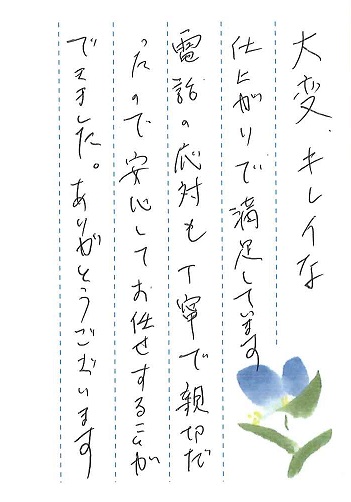 大変、キレイな
仕上がりで満足しています
電話の応対も丁寧で親切だ
ったので安心してお任せすることが
できました。ありがとうございます